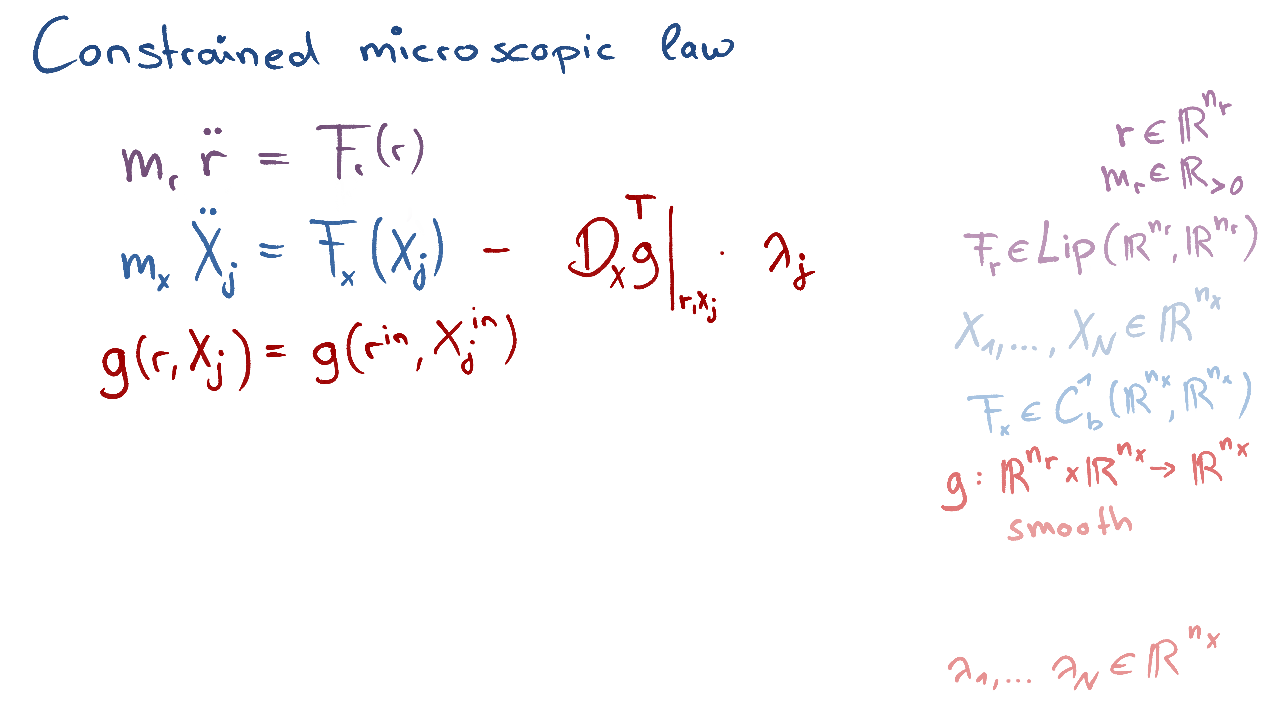 Constrained microscopic law
mᵣ r̈ = Fᵣ(r)
mₓ Ẍⱼ = Fₓ(Xⱼ) − Dₓgᵀ|r,Xⱼ · λⱼ
g(r, Xⱼ) = g(rⁱⁿ, Xⱼⁱⁿ)
r ∈ ℝⁿʳ
mᵣ ∈ ℝ>0
Fᵣ ∈ Lip(ℝⁿʳ, ℝⁿʳ)
X₁,..., X_N ∈ ℝⁿˣ
Fₓ ∈ C¹_b(ℝⁿˣ, ℝⁿˣ)
g : ℝⁿʳ × ℝⁿˣ → ℝⁿˣ
smooth
λ₁,... λ_N ∈ ℝⁿˣ